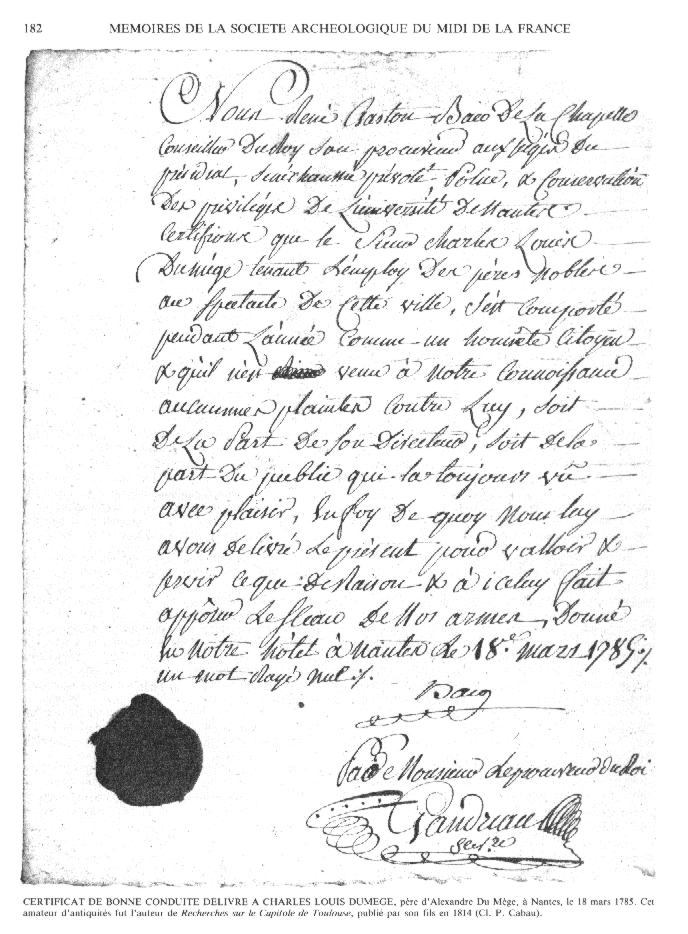 182 MEMOIRES DE LA SOCIETE ARCHEOLOGIQUE DU MIDI DE LA FRANCE
Nous René Gaston Baco De La Chapelle
Conseiller Du Roy son procureur aux sièges du
présidial, Sénéchaussée prévoté, Police, & Conservation
Des privilèges De L'université De Nantes
Certifions que le Sieur Charles Louis
Dumège tenant L'employ Des pères Nobles
au spectacle De Cette ville, s'est Comporté
pendant L'année Comme un honnête Citoyen
& qu'il n'est venu à Notre Connoissance
aucunnes plaintes Contre Luy, soit
De La Part De son Directeur, soit de la
part Du public qui l'a toujours vû
avec plaisir, En foy De quoy Nous luy
avons Délivré Le présent pour valloir &
servir ce que De Raison & à iceluy fait
apposer Le sceau De Nos armes, Donné
En Notre hôtel à Nantes Le 18.e mars 1785 ./.
un mot rayé nul ./.
Baco
Par Monsieur Le procureur du Roi
Gandriau
Secr.re
CERTIFICAT DE BONNE CONDUITE DELIVRE A CHARLES LOUIS DUMEGE, père d'Alexandre Du Mège, à Nantes, le 18 mars 1785. Cet
amateur d'antiquités fut l'auteur de Recherches sur le Capitole de Toulouse, publié par son fils en 1814 (Cl. P. Cabau).